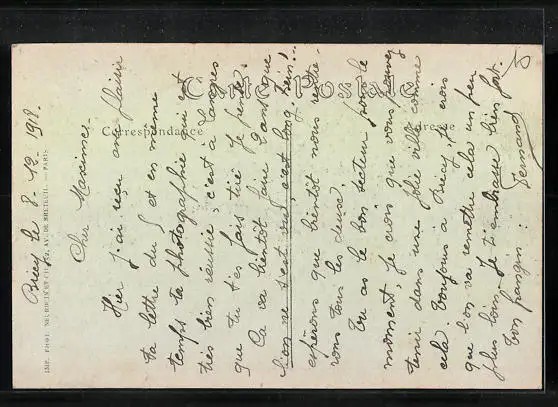 Carte Postale
Correspondance
Adresse
IMP. PHOT. NEURDEIN ET Cie, AV. DE BRETEUIL. — PARIS
Briey le 8-12-1918.
Cher Maxime.
Hier j'ai reçu avec plaisir
ta lettre du 5 et en même
temps ta photographie qui est
très bien réussie, c'est à Langres
que tu t'es fais tiré je pense.
Ça va bientôt faire 2 ans que
l'on ne s'est vu, c'est long, hein!..
espérons que bientôt nous rentre-
rons tous les deux.
Tu as le bon secteur pour le
moment, je crois que vous pouvez
tenir dans une jolie ville comme
cela. Toujours à Briey, je crois
que l'on va remettre cela un peu
plus loin. Je t'embrasse bien fort.
Ton frangin: Fernand